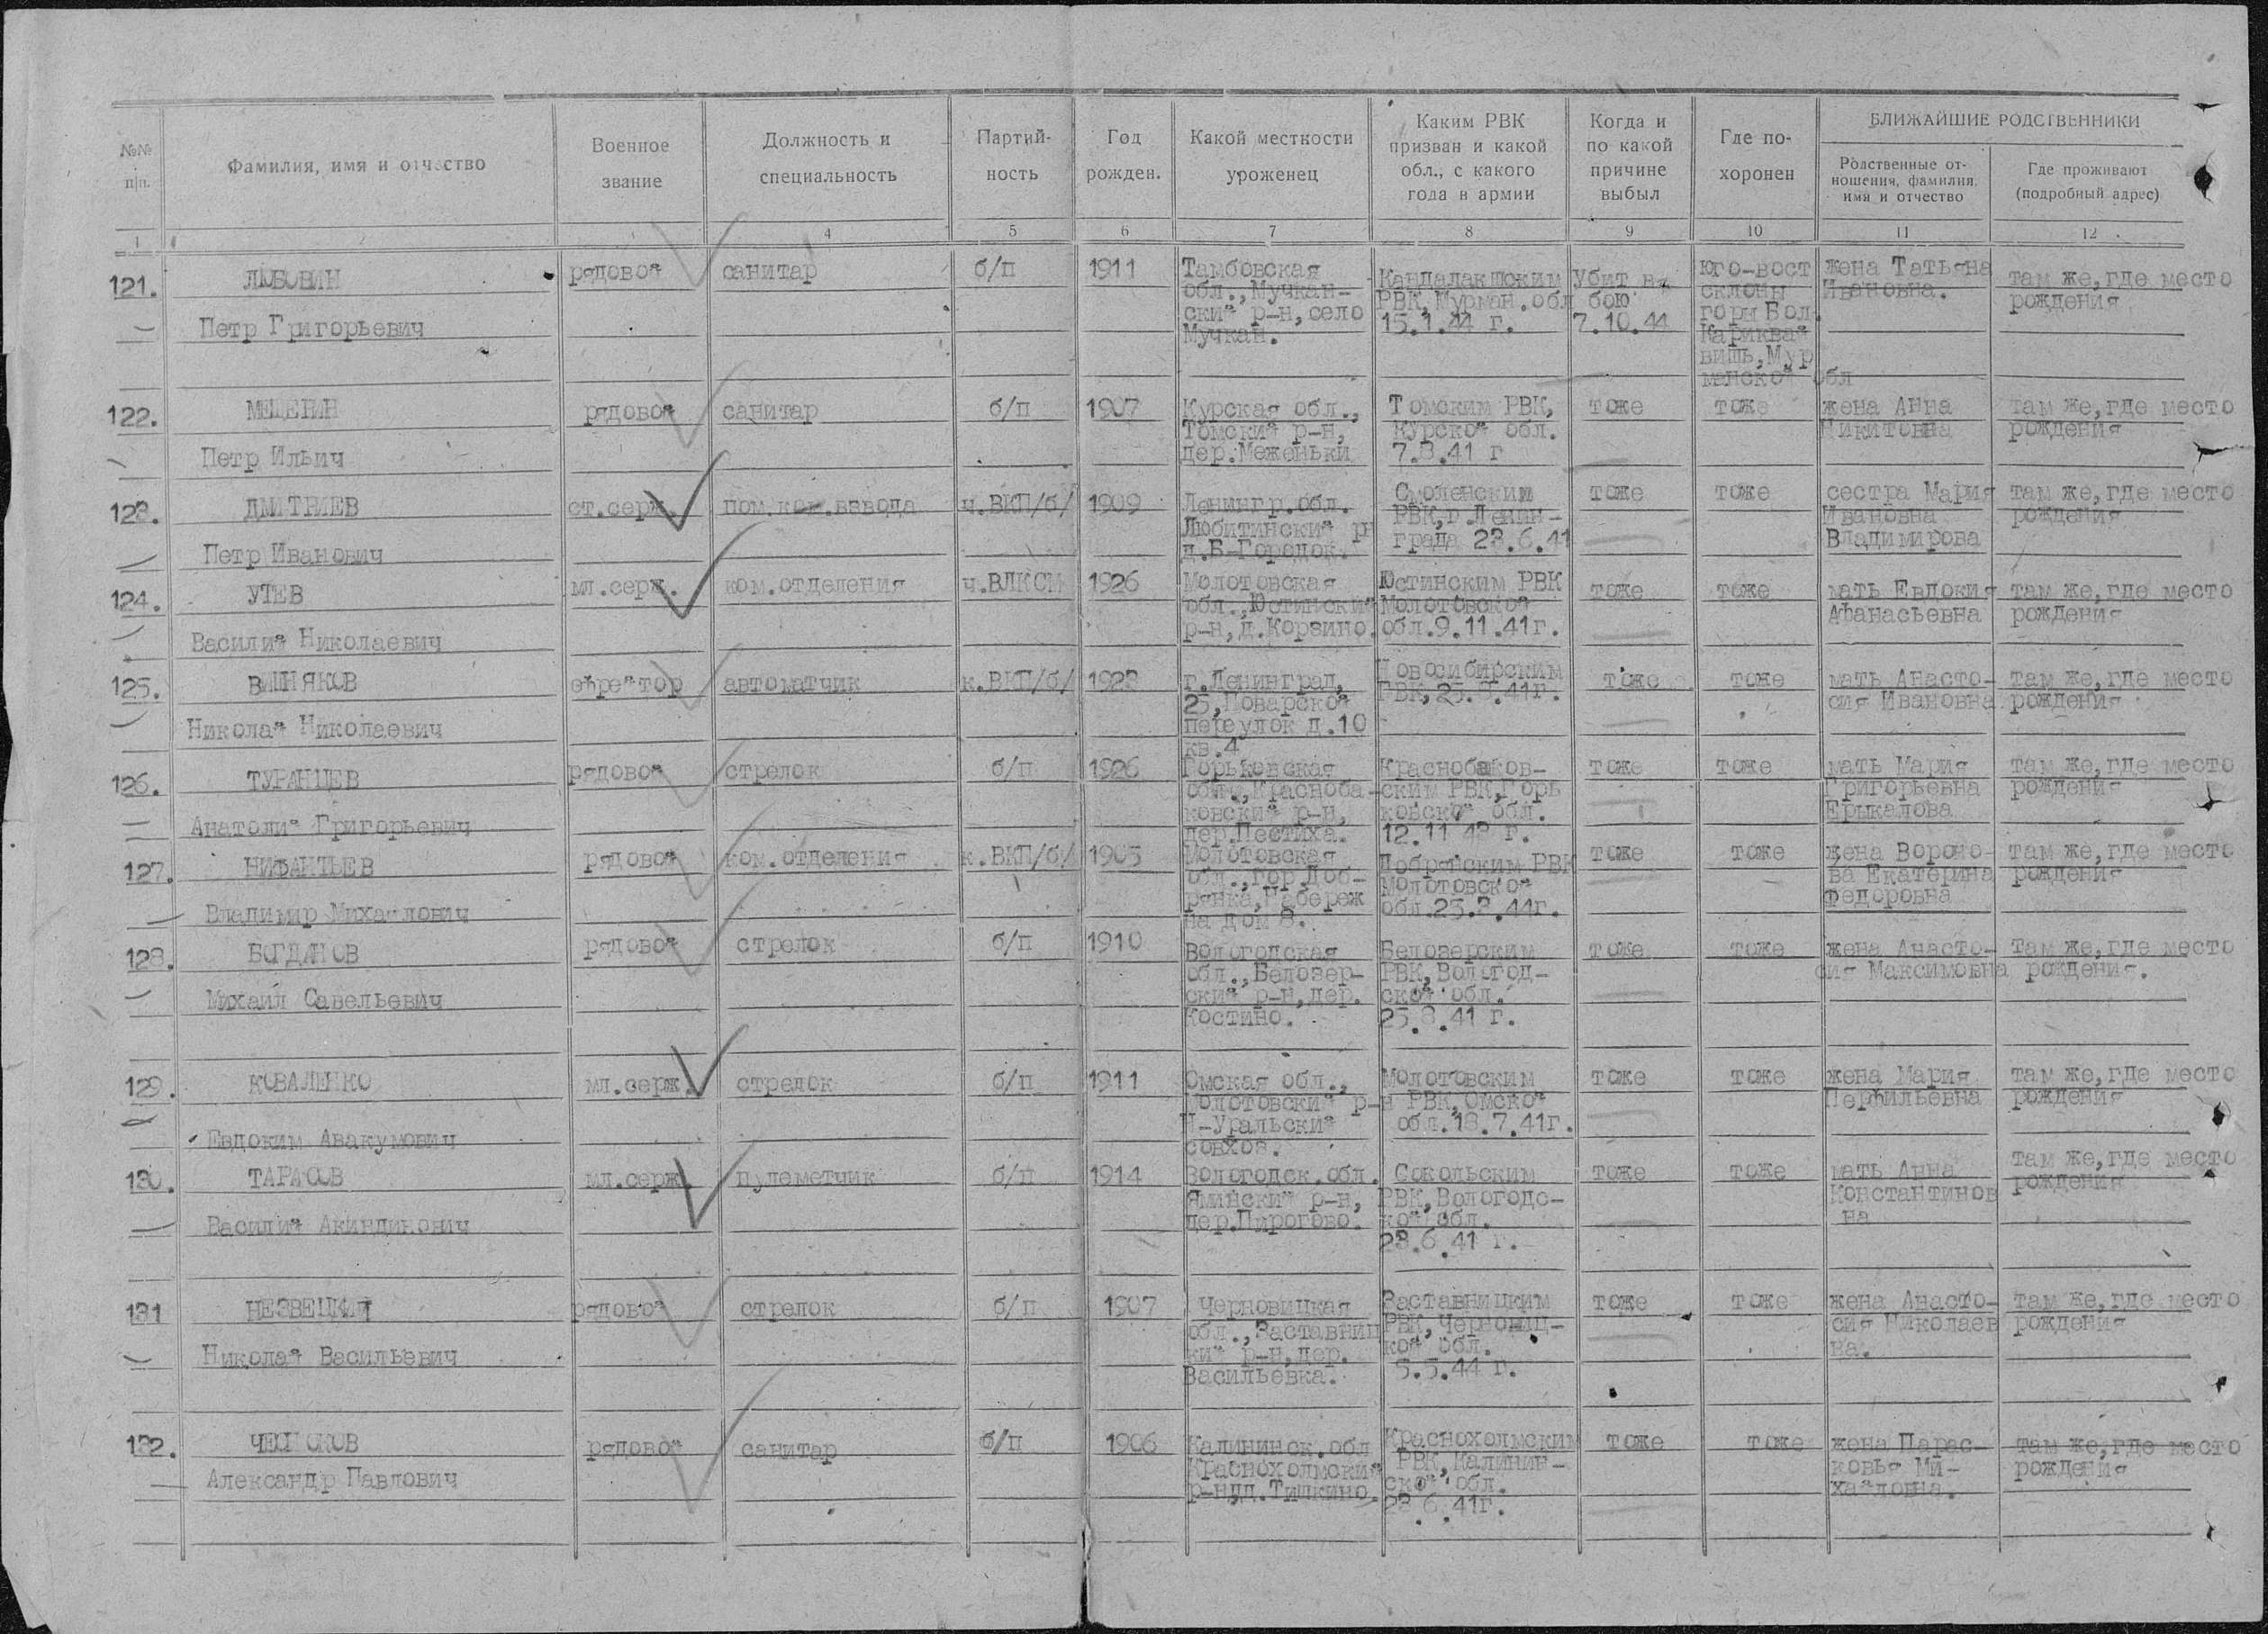 №№ п/п.
Фамилия, имя и отчество
Военное звание
Должность и специальность
Партий-ность
Год рожден.
Какой местности уроженец
Каким РВК призван и какой обл., с какого года в армии
Когда и по какой причине выбыл
Где по-хоронен
БЛИЖАЙШИЕ РОДСТВЕННИКИ
Родственные от-ношения, фамилия, имя и отчество
Где проживают (подробный адрес)
1 4 5 6 7 8 9 10 11 12
121. ЛЮБОВИН рядовой санитар б/п 1911 Тамбовская Кандалакшским Убит в юго-вост жена Татьяна там же, где место
обл., Мучкан- РВК, Мурман. обл бою склоны Ивановна. рождения
Петр Григорьевич ский р-н, село 15.1.44 г. 7.10.44 горы Бол.
Мучкан. Кариквай
виш, Мур
манской обл
122. рядовой санитар б/п 1907 Курская обл., Томским РВК, тоже тоже жена Анна там же, где место
Томский р-н, Курской обл. Никитовна рождения
Петр Ильич дер. Меженьки 7.8.41 г
123. ДМИТРИЕВ ст.серж. пом.ком.взвода ч.ВКП/б/ 1909 Ленингр.обл. Смоленским тоже тоже сестра Мария там же, где место
Любитинский рн РВК, г.Ленин- Ивановна рождения
Петр Иванович д.Б-Городок. града 23.6.41 Владимирова
124. УТЕВ мл.серж. ком.отделения ч.ВЛКСМ 1926 Молотовская Юстинским РВК тоже тоже мать Евдокия там же, где место
обл., Юстинский Молотовской Афанасьевна рождения
Василий Николаевич р-н, д.Корзино. обл.9.11.41г.
125. ВИШНЯКОВ ефрейтор автоматчик к.ВКП/б/ 1923 г.Ленинград, Новосибирским тоже тоже мать Анасто- там же, где место
25, Поварской РВК, сия Ивановна рождения
Николай Николаевич переулок д.10
кв.4
126. ТУРАНЦЕВ рядовой стрелок б/п 1926 Горьковская Краснобаков- тоже тоже мать Мария там же, где место
обл., Красноба- ским РВК, Горь Григорьевна рождения
ковский р-н, ковской обл. Ерыкалова
Анатолий Григорьевич дер.Пестиха. 12.11.43 г.
127. НИФАНТЬЕВ рядовой ком.отделения к.ВКП/б/ 1905 Молотовская Добрянским РВК тоже тоже жена Вороно- там же, где место
обл., гор.Доб- Молотовской ва Екатерина рождения
Владимир Михайлович рянка, Набереж обл. Федоровна
на дом 8.
128. БОГДАНОВ рядовой стрелок б/п 1910 Вологодская Белозерским тоже тоже жена Анасто- там же, где место
обл., Белозер- РВК, Вологод- сия Максимовна рождения.
Михаил Савельевич ский р-н, дер. ской обл.
Костино. 25.8.41 г.
129. КОВАЛЕНКО мл.серж. стрелок б/п 1911 Омская обл., Молотовским тоже тоже жена Мария там же, где место
Молотовский р-н РВК, Омской Перфильевна рождения
Евдоким Авакумович Н-Уральский обл.18.7.41г.
совхоз.
130. ТАРАСОВ мл.серж. пулеметчик б/п 1914 Вологодск.обл. Сокольским тоже тоже мать Анна там же, где место
р-н, РВК, Вологодс- Константинов рождения
Василий Акиндинович дер.Пирогово. кой обл. на
23.6.41 г.
131 НЕЗВЕЦКИЙ рядовой стрелок б/п 1907 Черновицкая Заставницким тоже тоже жена Анасто- там же, где место
обл., Заставниц РВК, Черновиц- сия Николаев рождения
Николай Васильевич кий р-н, дер. кой обл. на.
Васильевка. 5.5.44 г.
132. рядовой санитар б/п 1906 Калининск.обл Краснохолмским тоже тоже жена Парас- там же, где место
Александр Павлович Краснохолмский РВК, Калинин- ковья Ми- рождения
р-н,д.Тишкино. ской обл. хайловна.
23.6.41г.